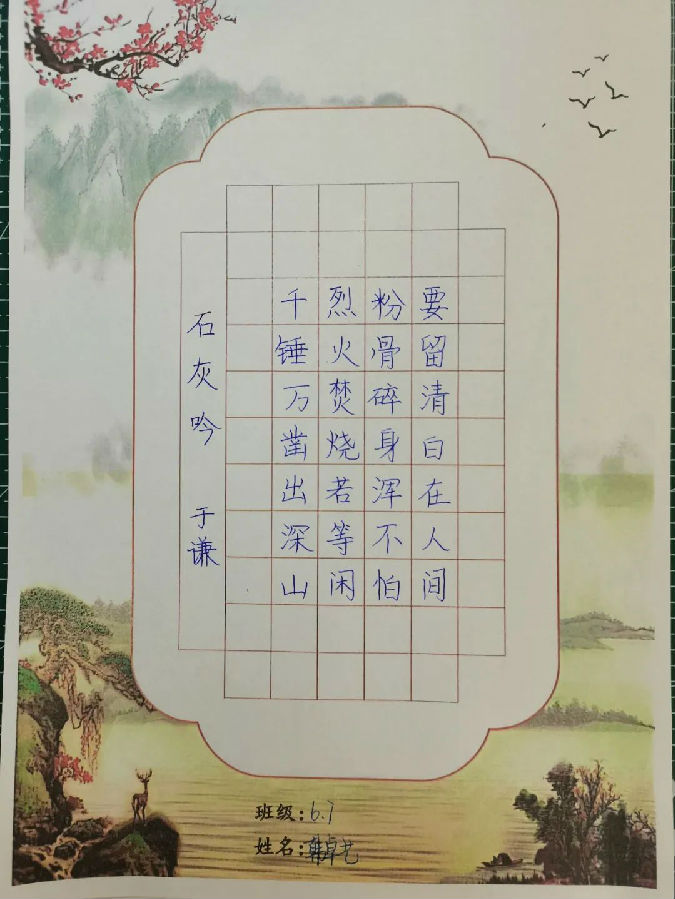 石灰吟 于谦
千锤万凿出深山
烈火焚烧若等闲
粉骨碎身浑不怕
要留清白在人间
班级:6.7
姓名:韩卓艺